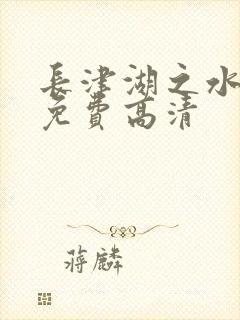 長津湖之水
免費高清
蔣麟